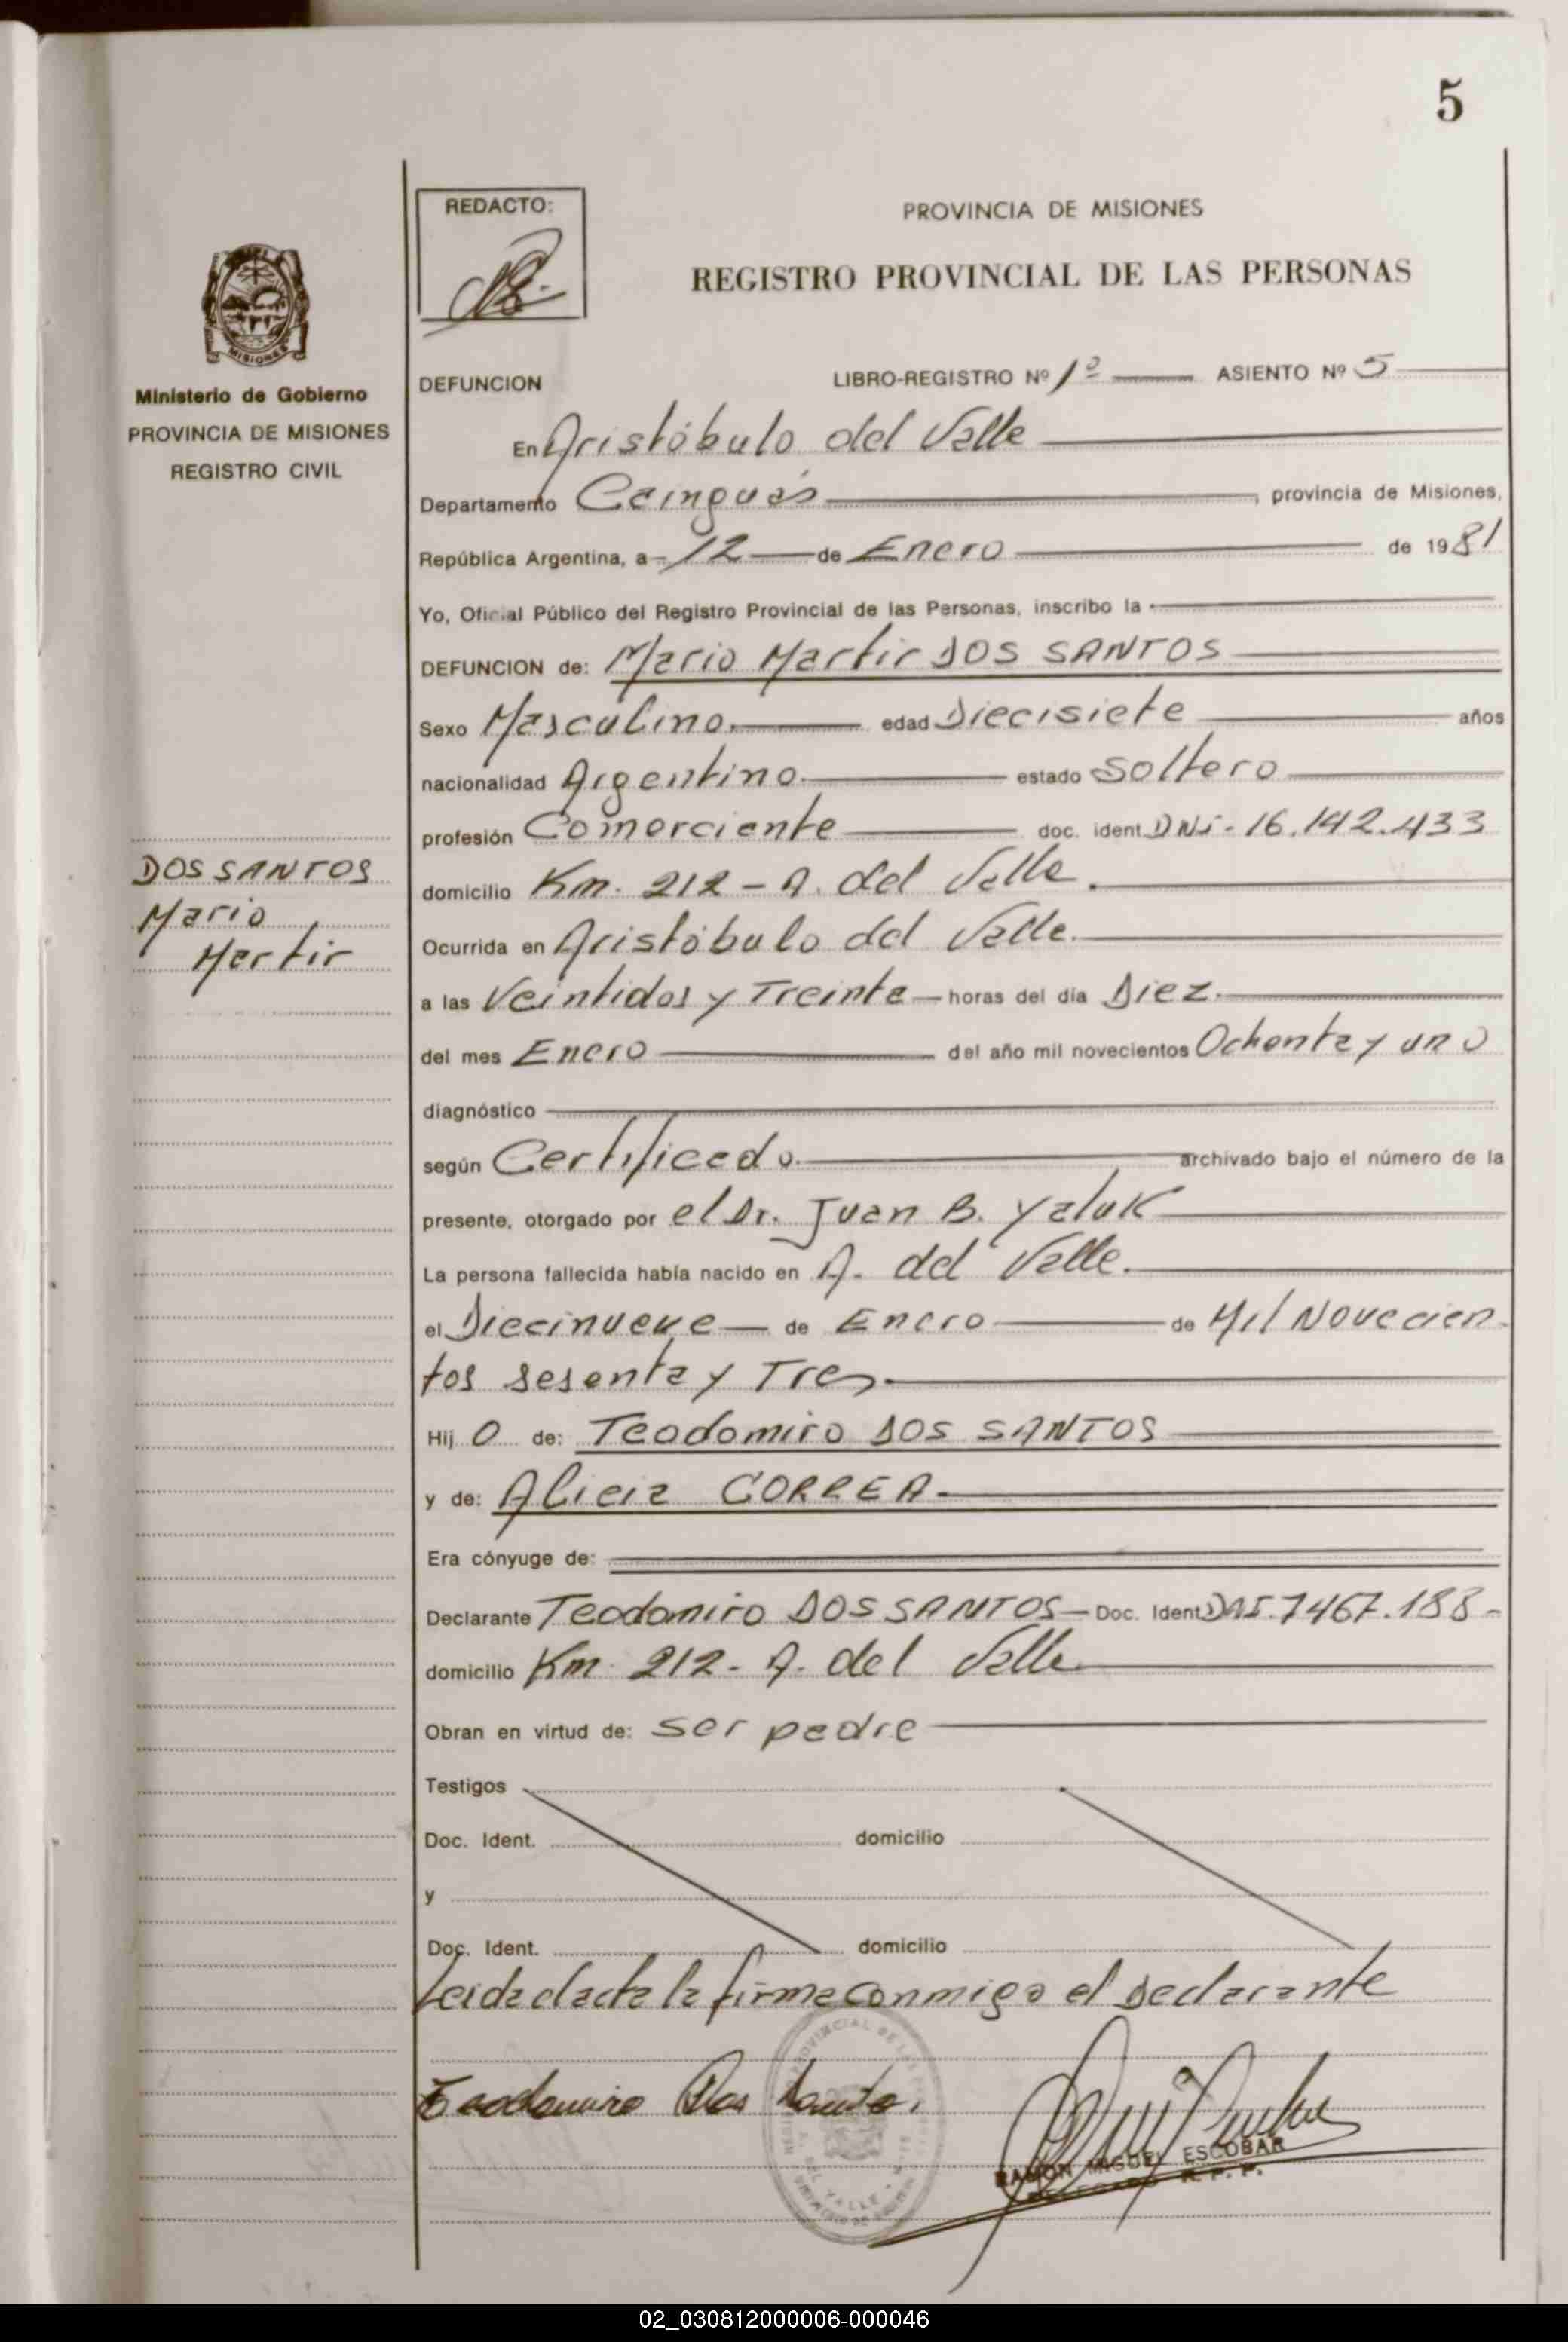 5
REDACTO:
PROVINCIA DE MISIONES
REGISTRO PROVINCIAL DE LAS PERSONAS
MISIONES
Ministerio de Gobierno
PROVINCIA DE MISIONES
REGISTRO CIVIL
DEFUNCION LIBRO-REGISTRO Nº 1º ASIENTO Nº 5
En Aristóbulo del Valle
Departamento Cainguás, provincia de Misiones,
República Argentina, a 12 de Enero de 1981
Yo, Oficial Público del Registro Provincial de las Personas, inscribo la
DEFUNCION de: Mario Martir DOS SANTOS
Sexo Masculino. edad Diecisiete años
nacionalidad Argentino. estado Soltero
profesión Comerciante doc. ident. DNi- 16.142.433
DOS SANTOS
Mario
Martir
domicilio Km. 212 - A. del Valle.
Ocurrida en Aristóbulo del Valle.
a las Veintidos y Treinta horas del día Diez.
del mes Enero del año mil novecientos Ochenta y uno
diagnóstico
según Certificado. archivado bajo el número de la
presente, otorgado por el Dr. Juan B. Yaluk
La persona fallecida había nacido en A. del Valle.
el Diecinueve de Enero de Mil Novecien
tos sesenta y Tres.
Hij o de: Teodomiro DOS SANTOS
y de: Alicia CORREA.
Era cónyuge de:
Declarante Teodomiro DOS SANTOS - Doc. Ident. DNI. 7467.188-
domicilio Km 212- A. del Valle
Obran en virtud de: ser padre
Testigos
Doc. Ident. domicilio
y
Doc. Ident. domicilio
Leida el acta la firma conmigo el declarante
Teodomiro Dos Santos.
RAMON MIGUEL ESCOBAR
R. P. P.
02_030812000006-000046